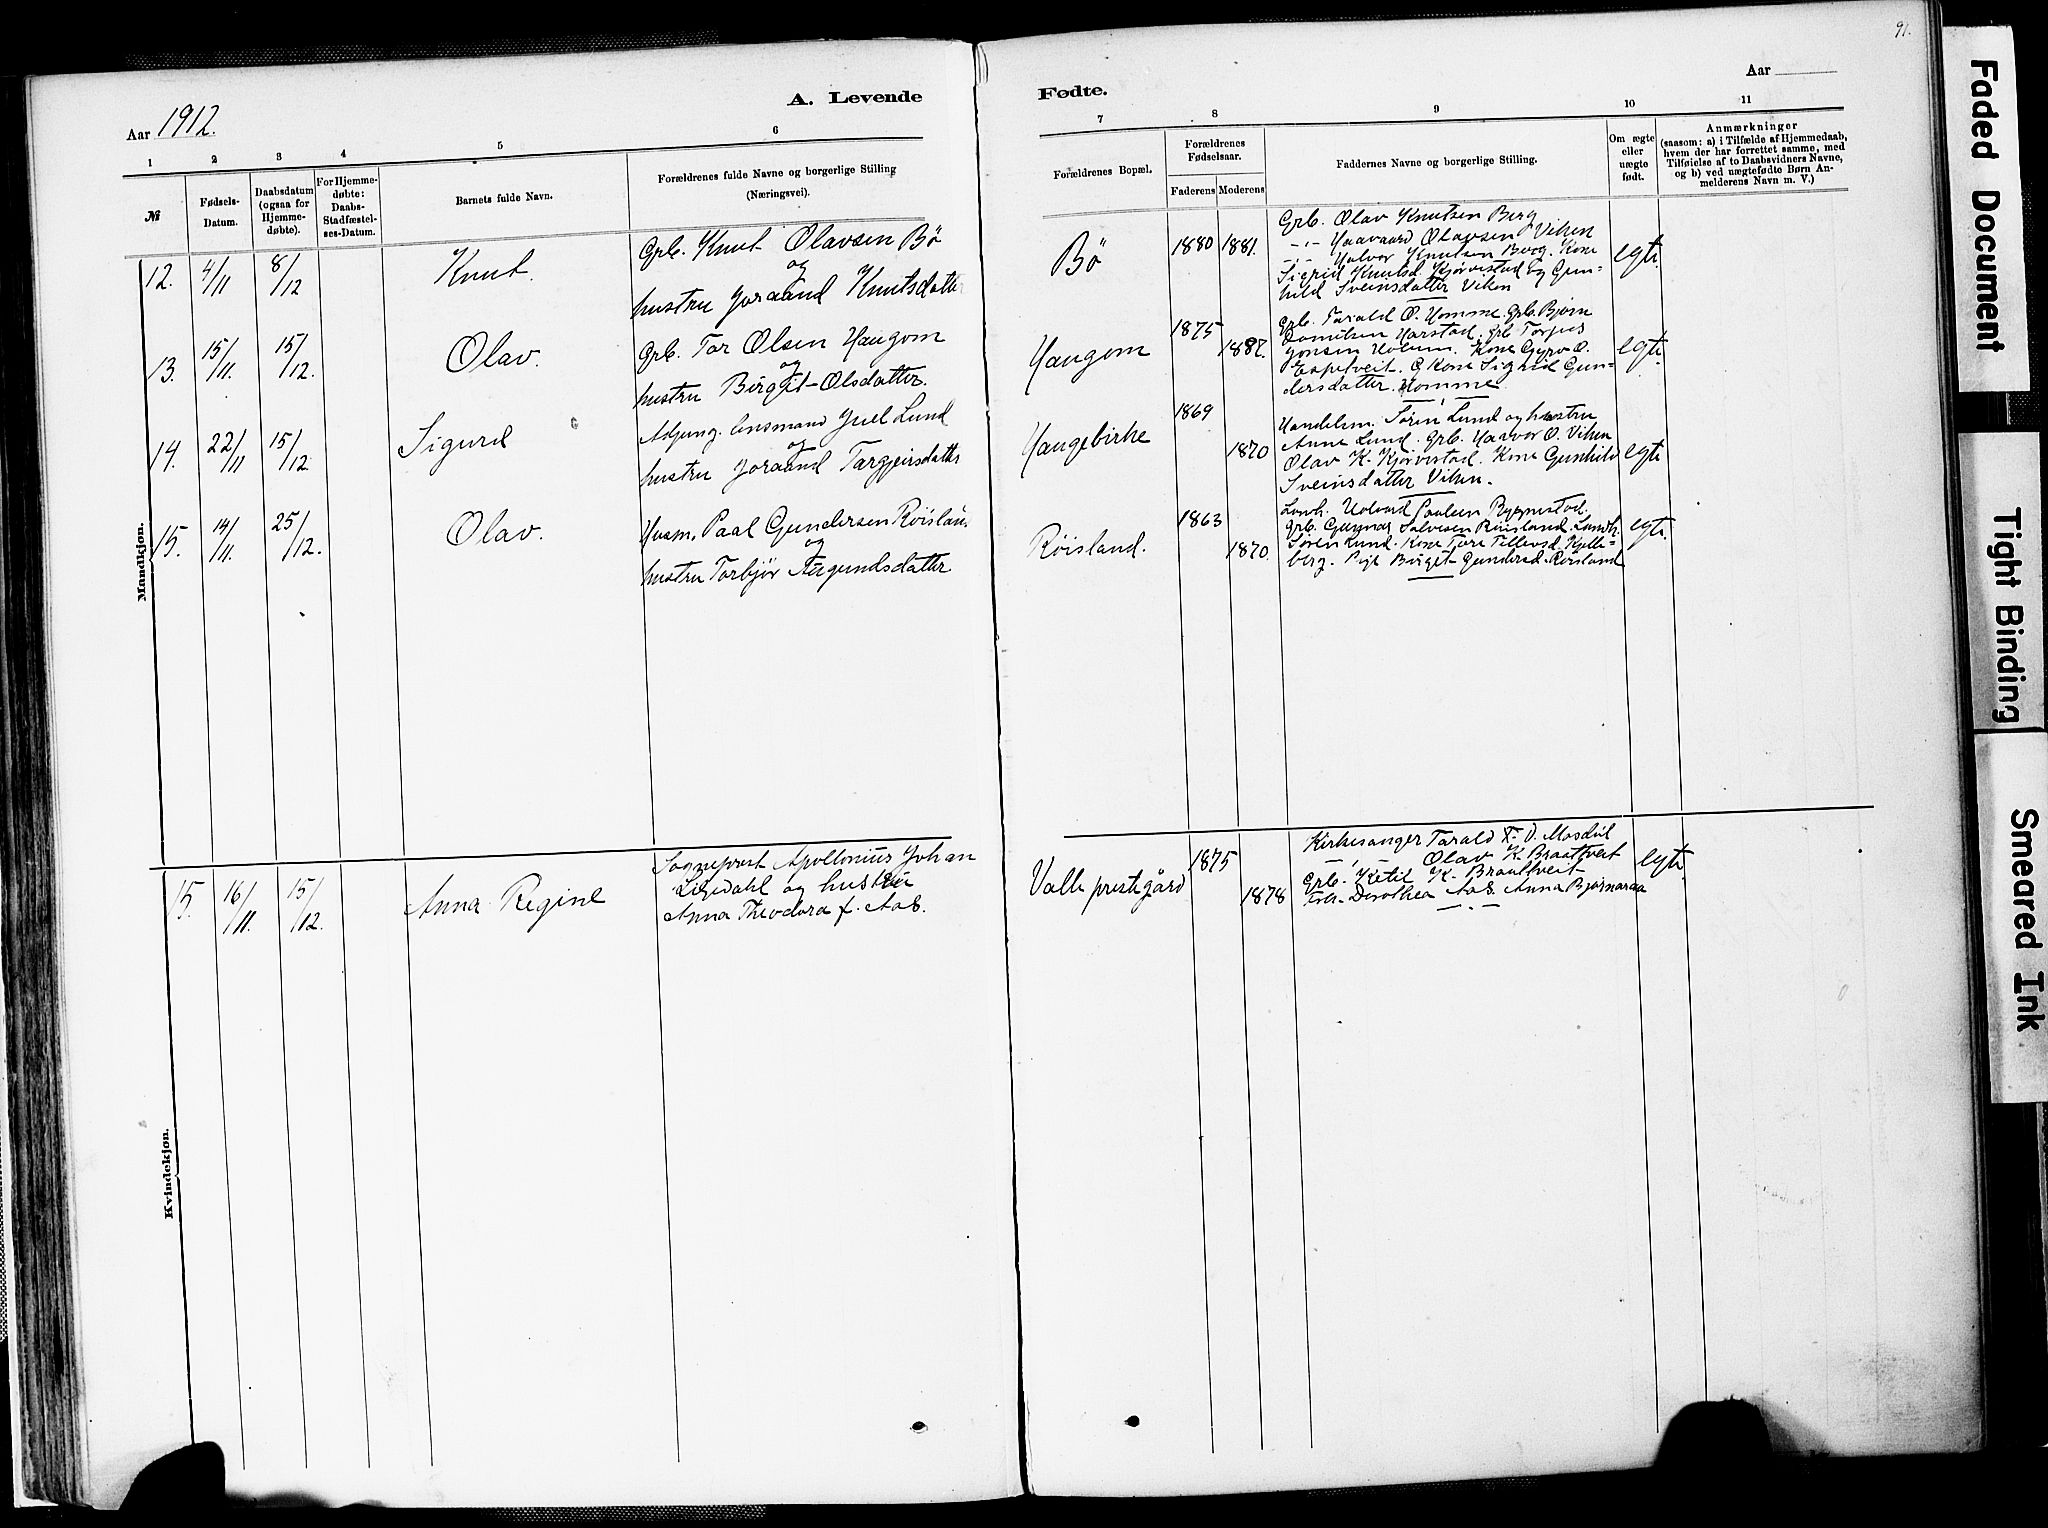 91.
Aar 1912.
A. Levende
Fødte.
Aar
1
2
3
4
5
6
7
8
9
10
11
№
Fødsels-
Datum.
Daabsdatum
(ogsaa for
Hjemme-
døbte).
For Hjemme-
døbte:
Daabs-
Stadfæstel-
ses-Datum.
Barnets fulde Navn.
Forældrenes fulde Navne og borgerlige Stilling
(Næringsvei).
Forældrenes Bopæl.
Forældrenes
Fødselsaar.
Faderens Moderens
Faddernes Navne og borgerlige Stilling.
Om ægte
eller
uægte
født.
Anmærkninger
(saasom: a) i Tilfælde af Hjemmedaab,
hvem der har forrettet samme, med
Tilføielse af to Daabsvidners Navne,
og b) ved uægtefødte Børn An-
melderens Navn m. V.)
Mandkjøn.
12. 4/11 8/12 Knut.
Grb. Knut Olavsen Bø
og
hustru Joraand Knutsdatter
Bø 1880 1881.
Grb. Olav Knutsen Berg
-"- Haavaard Olavsen Viken
-"- Halvor Knutsen Berg. Kone
Sigrid Knutsd. Kjørvestad og Gun-
hild Sveinsdatter Viken
egte.
13. 15/11. 15/12. Olav.
Grb. Tor Olsen Haugom
og
hustru Birgit Olsdatter.
Haugom 1875 1887.
Grb. Tarald O. Homme. Grb. Bjørn
Danielsen Harstad. Grb. Torjus
Jonsen Uolum. Kone Gyro O.
Espetveit. G Kone Sigrid Gun-
dersdatter. Homme
egte.
14. 22/11 15/12 Sigurd
Adjung. lensmand Juel Lund
og
hustru Joraand Targjeirsdatter
Haugebirke 1869 1870
Handelsm. Søren Lund og hustru
Anne Lund. Grb. Halvor O. Viken
Olav K. Kjørvestad. Kone Gunhild
Sveinsdatter Viken.
egte
15. 14/11. 25/12. Olav.
Husm. Paal Gundersen Røislan
og
hustru Torbjør Augundsdatter
Røisland. 1863 1870.
Landh. Halvard Paulsen Rygnestad.
Grb. Gunnar Salvesen Røisland. Landh.
Søren Lund. Kone Tore Tellevsd. Kjelle-
berg. Pige Birget Gundersd. Røisland
egte.
Kvindekjøn.
15. 16/11. 15/12. Anna Regine
Sogneprest Apollonius Johan
Ligsdahl og hustru
Anna Theodora f. Aas.
Valle prestegård 1875 1878
Kirkesanger Tarald T. D. Mosdøl
-"- Olav K. Braatveit
Grb. Ketil K. Braattveit
Frk. Dorothea Aas. Anna Bjørnaraa
egte.
Faded Document
Tight Binding
Smeared Ink